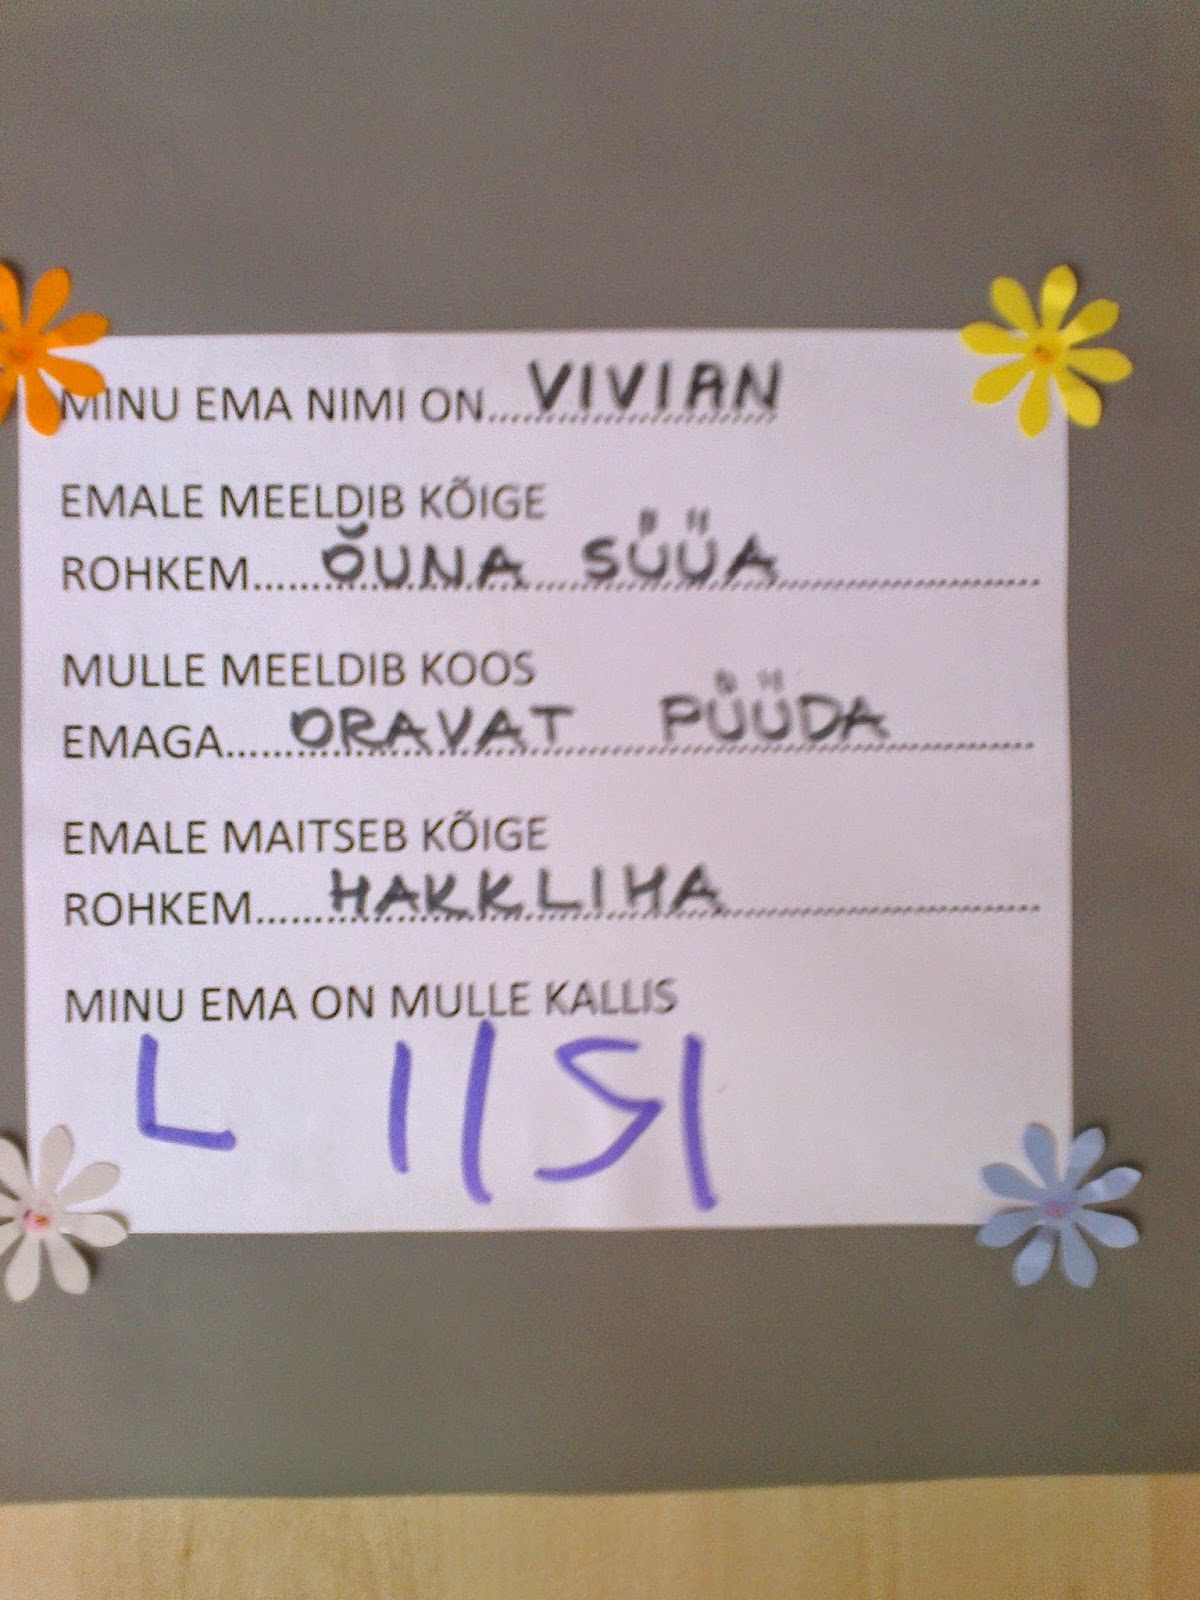 MINU EMA NIMI ON...VIVIAN
EMALE MEELDIB KÕIGE
ROHKEM......ÕUNA SÜÜA
MULLE MEELDIB KOOS
EMAGA......ORAVAT PÜÜDA
EMALE MAITSEB KÕIGE
ROHKEM......HAKKLIHA
MINU EMA ON MULLE KALLIS
LIISI